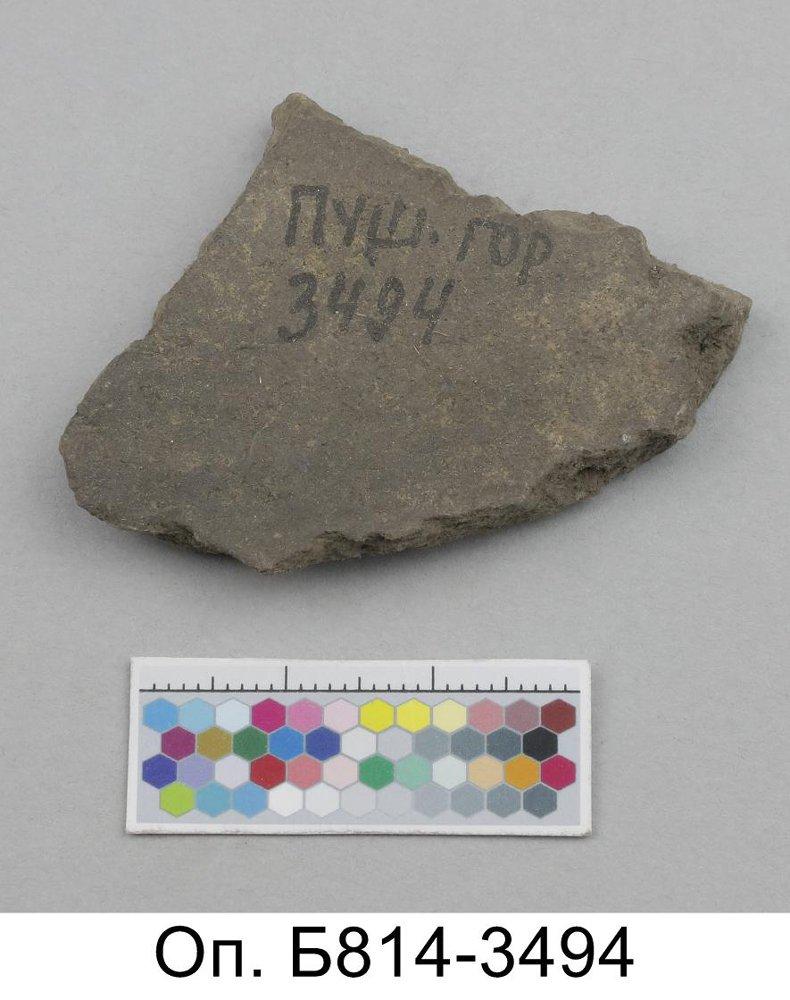 Пуш. гор
3494
Оп. Б814-3494